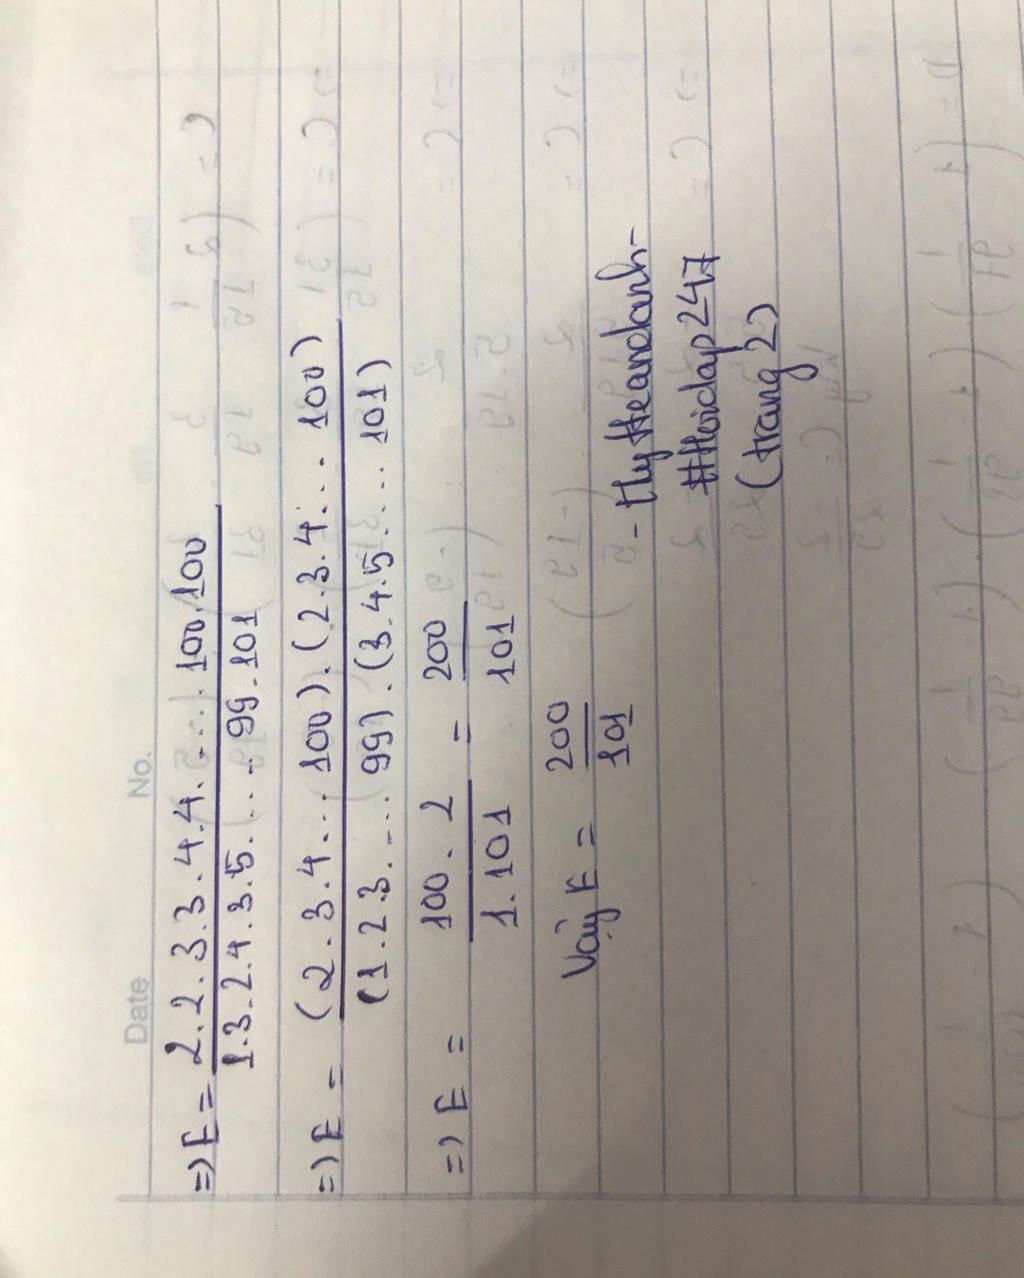 Date No.
=) E = 2.2.3.3.4.4....100.100
1.3.2.4.3.5....99.101
=) E = (2.3.4...100).(2.3.4....100)
(1.2.3....99).(3.4.5....101)
=) E = 100.2 = 200
1.101 101
Vậy E = 200
101
#Hoidap247
(trang 2)